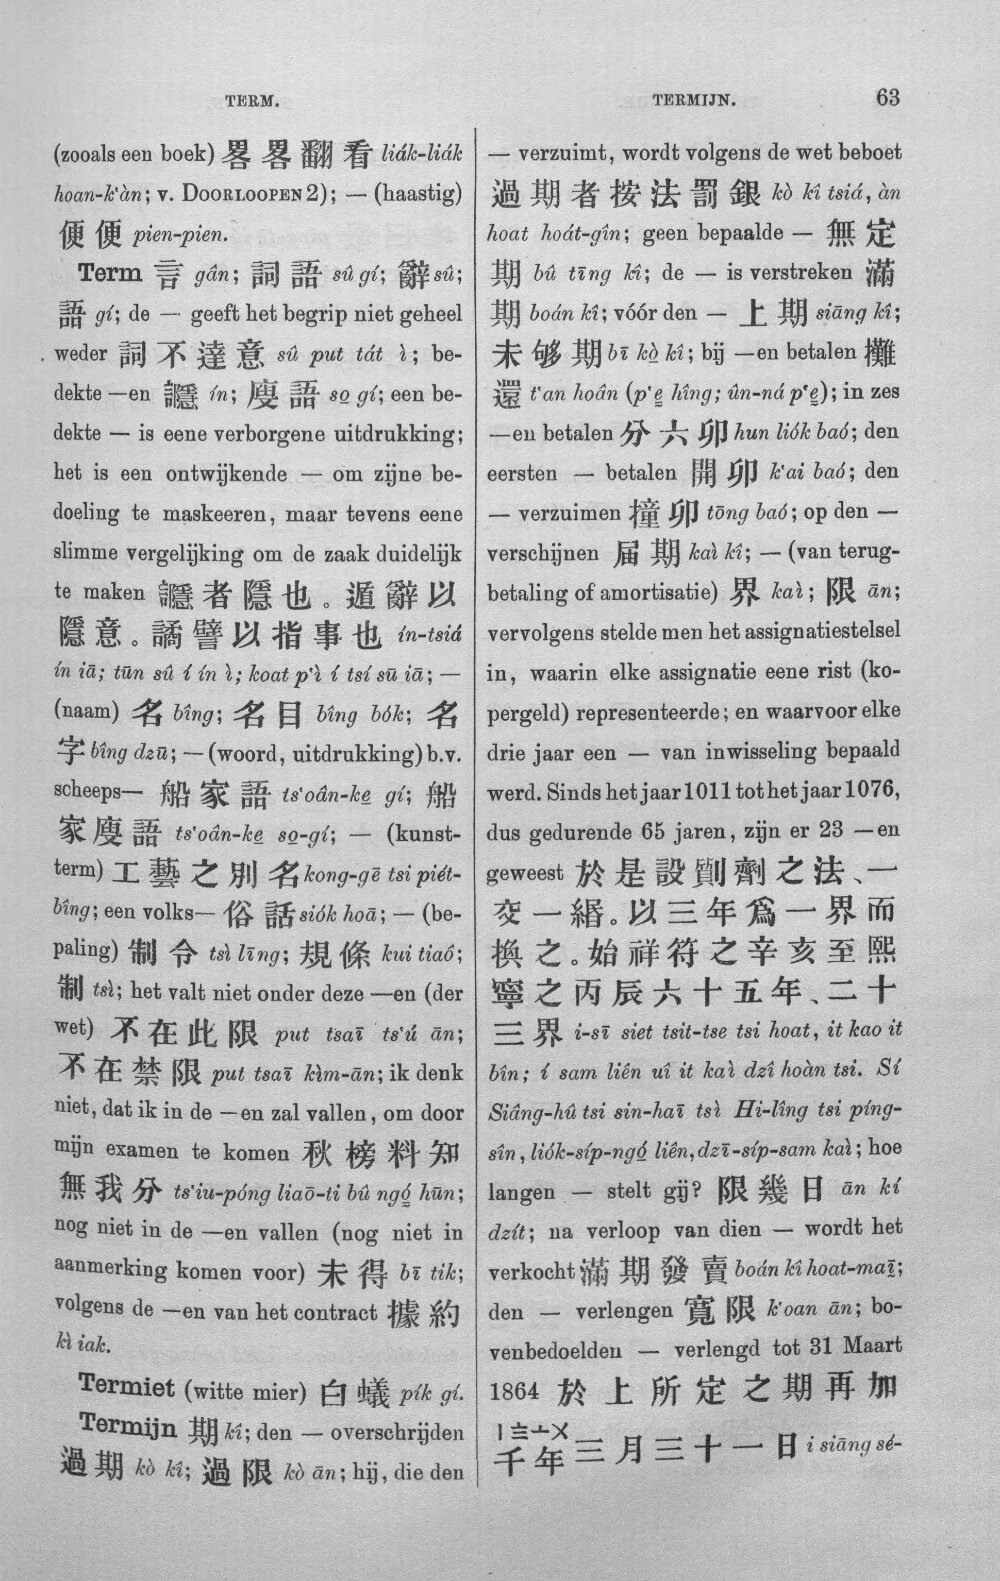 TERM.
TERMIJN.
63
(zooals een boek) 畧畧翻看 liák-liák
hoan-k‘àn; v. DOORLOOPEN 2); — (haastig)
便便 pien-pien.
Term 言 gân; 詞語 sû gí; 辭 sû;
語 gí; de — geeft het begrip niet geheel
weder 詞不達意 sû put tát ì; be-
dekte —en 讔 ín; 廋語 so̲ gí; een be-
dekte — is eene verborgene uitdrukking;
het is een ontwijkende — om zijne be-
doeling te maskeeren, maar tevens eene
slimme vergelijking om de zaak duidelijk
te maken 讔者隱也。遁辭以
隱意。譎譬以指事也 ín-tsiá
ín iā; tūn sû í ín ì; koat p‘ì í tsí sū iā; —
(naam) 名 bîng; 名目 bîng bók; 名
字 bîng dzū; — (woord, uitdrukking) b.v.
scheeps— 船家語 ts‘oân-ke̲ gí; 船
家廋語 ts‘oân-ke̲ so̲-gí; — (kunst-
term) 工藝之別名 kong-gē tsi piét-
bîng; een volks— 俗話 siók hoā; — (be-
paling) 制令 tsì līng; 規條 kui tiaô;
制 tsì; het valt niet onder deze —en (der
wet) 不在此限 put tsaī ts‘ú ān;
不在禁限 put tsaī kìm-ān; ik denk
niet, dat ik in de —en zal vallen, om door
mijn examen te komen 秋榜料知
無我分 ts‘iu-póng liaō-ti bû ngó̲ hūn;
nog niet in de —en vallen (nog niet in
aanmerking komen voor) 未得 bī tik;
volgens de —en van het contract 據約
kì iak.
Termiet (witte mier) 白蟻 pík gí.
Termijn 期 kî; den — overschrijden
過期 kò kî; 過限 kò ān; hij, die den
— verzuimt, wordt volgens de wet beboet
過期者按法罰銀 kò kî tsiá, àn
hoat hoát-gîn; geen bepaalde — 無定
期 bû tīng kî; de — is verstreken 滿
期 boán kî; vóór den — 上期 siāng kî;
未够期 bī kò̲ kî; bij —en betalen 攤
還 t‘an hoân (p‘e̲ hîng; ûn-ná p‘e̲); in zes
—en betalen 分六卯 hun liók baó; den
eersten — betalen 開卯 k‘ai baó; den
— verzuimen 撞卯 tōng baó; op den —
verschijnen 届期 kaì kî; — (van terug-
betaling of amortisatie) 界 kaì; 限 ān;
vervolgens stelde men het assignatiestelsel
in, waarin elke assignatie eene rist (ko-
pergeld) representeerde; en waarvoor elke
drie jaar een — van inwisseling bepaald
werd. Sinds het jaar 1011 tot het jaar 1076,
dus gedurende 65 jaren, zijn er 23 —en
geweest 於是設劑之法、一
交一緡。以三年爲一界而
換之。始祥符之辛亥至熙
寧之丙辰六十五年、二十
三界 i-sī siet tsit-tse tsi hoat, it kao it
bîn; í sam liên uî it kaì dzî hoàn tsi. Sí
Siâng-hû tsi sin-haī tsì Hi-lîng tsi píng-
sîn, liók-síp-ngó̲ liên, dzī-síp-sam kaì; hoe
langen — stelt gij? 限幾日 ān kí
dzít; na verloop van dien — wordt het
verkocht 滿期發賣 boán kî hoat-maī̲;
den — verlengen 寬限 k‘oan ān; bo-
venbedoelden — verlengd tot 31 Maart
1864 於上所定之期再加
〡〨〦〤
千年三月三十一日 i siāng sé-